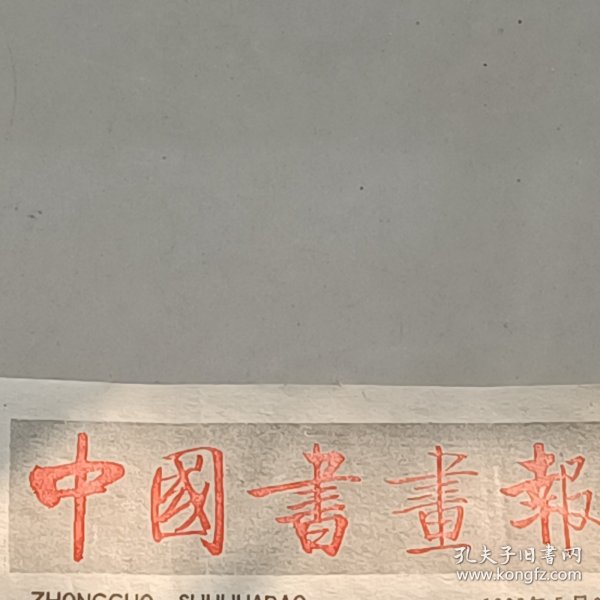 中國書畫報
ZHONGGUO SHUHUABAO
孔夫子旧书网
www.kongfz.com